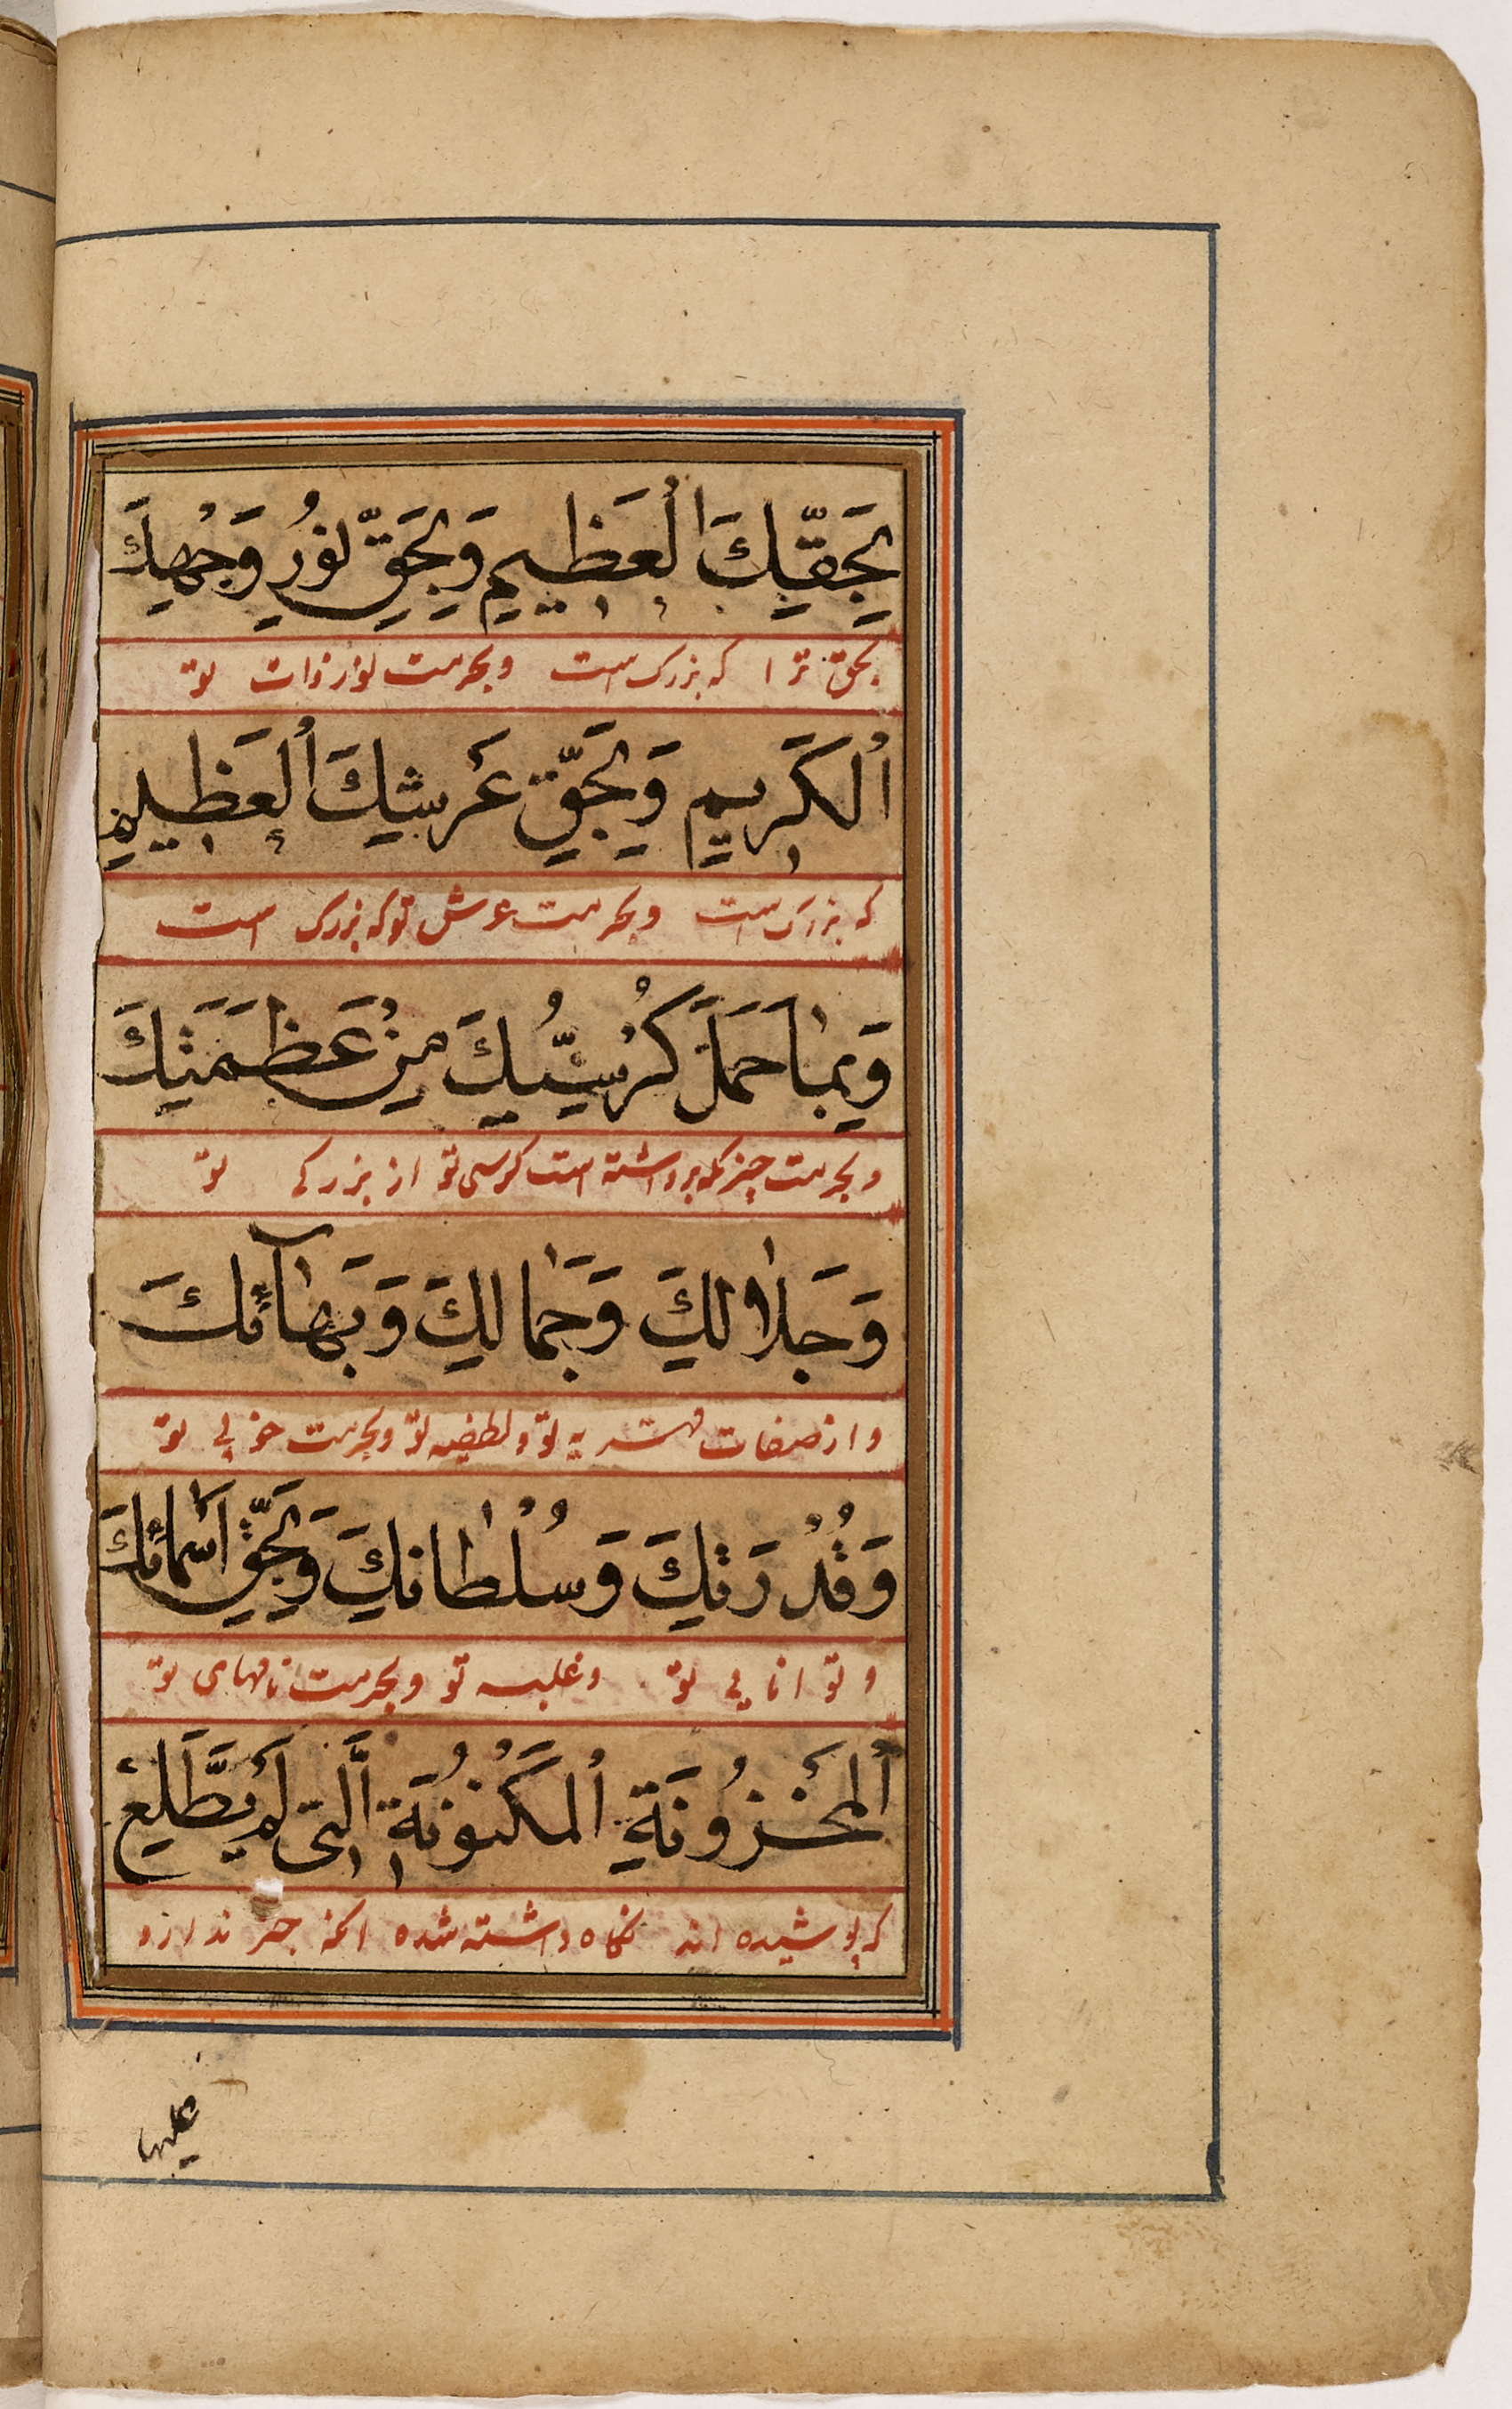 بِحَقِّكَ الْعَظِيمِ وَبِحَقِّ نُورِ وَجْهِكَ
بحق ترا که بزرک است وبحرمت نور ذات تو
الْكَرِيمِ وَبِحَقِّ عَرْشِكَ الْعَظِيمِ
که بزرک است وبحرمت عرش تو که بزرک است
وَبِمَا حَمَلَ كُرْسِيُّكَ مِنْ عَظَمَتِكَ
وبحرمت چیزکه برداشته است کرسی تو از بزرکی تو
وَجَلَالِكَ وَجَمَالِكَ وَبَهَآئِكَ
واز صفات تو و تو وبحرمت خوبی تو
وَقُدْرَتِكَ وَسُلْطَانِكَ وَبِحَقِّ اَسْمَائِكَ
وتوانایی تو وغلبه تو وبحرمت نامهای تو
الْمَخْزُونَةِ الْمَكْنُونَةِ الَّتِى لَمْ يَطَّلِعْ
که پوشیده اند نکاه داشته شده انکه خبر ندارد
علیها